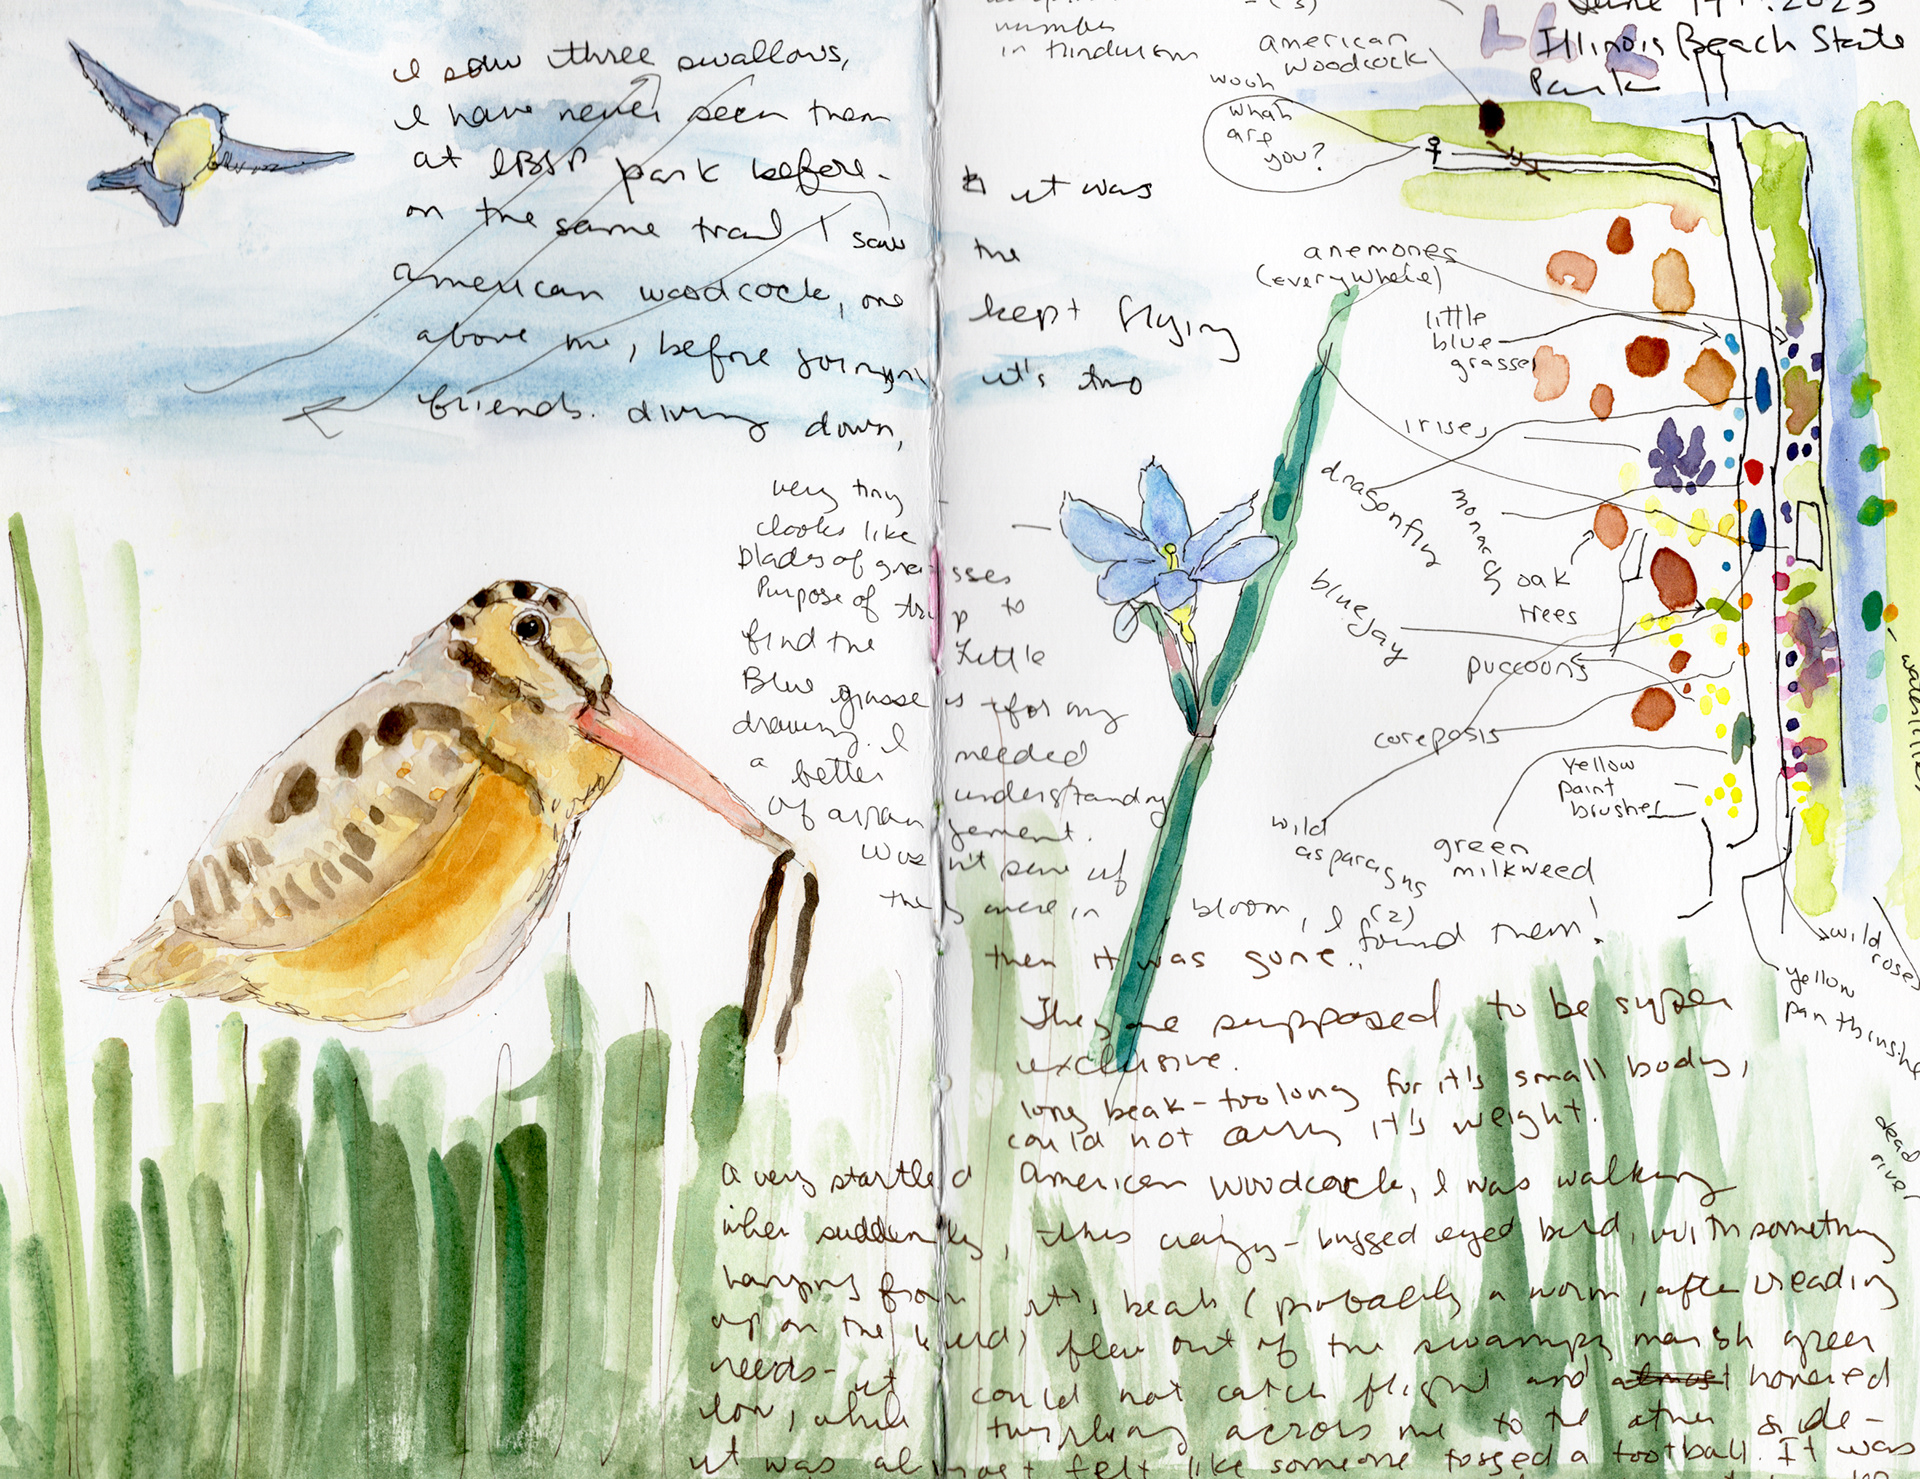 I saw three swallows,
I have never seen them
at IBSP park before -
on the same trail I saw
American woodcock, one
above me, before joining
friends. diving down,
it was
the
kept flying
it's two
number
in Hinduism
June 14th, 2023
Illinois Beach State
Park
american
woodcock
wooh
what
are
you?
anemones
(everywhere)
little
blue
grasses
irises
dragonfly
monarch
blue jay
oak
trees
puccoons
coreopsis
wild
asparagus
green
milkweed
yellow
paint
brushes
wild
roses
yellow
waterlilies
dead
river
very tiny -
looks like
blades of grasses
Purpose of trip to
find the little
Blue grasses for my
drawing. I needed
a better understanding
of arrangement.
Wasn't sure if
they were in bloom, I (2)
found them!
then it was gone..
They are supposed to be super
exclusive.
long beak - too long for it's small body,
could not carry it's weight.
A very startled American woodcock, I was walking
when suddenly, this crazy - bugged eyed bird, with something
hanging from it's beak (probably a worm, after reading
up on the bird) flew out of the swampy marsh green
reeds - it could not catch flight and almost hovered
low, while twirling across me to the other side -
it was almost felt like someone tossed a football. It was